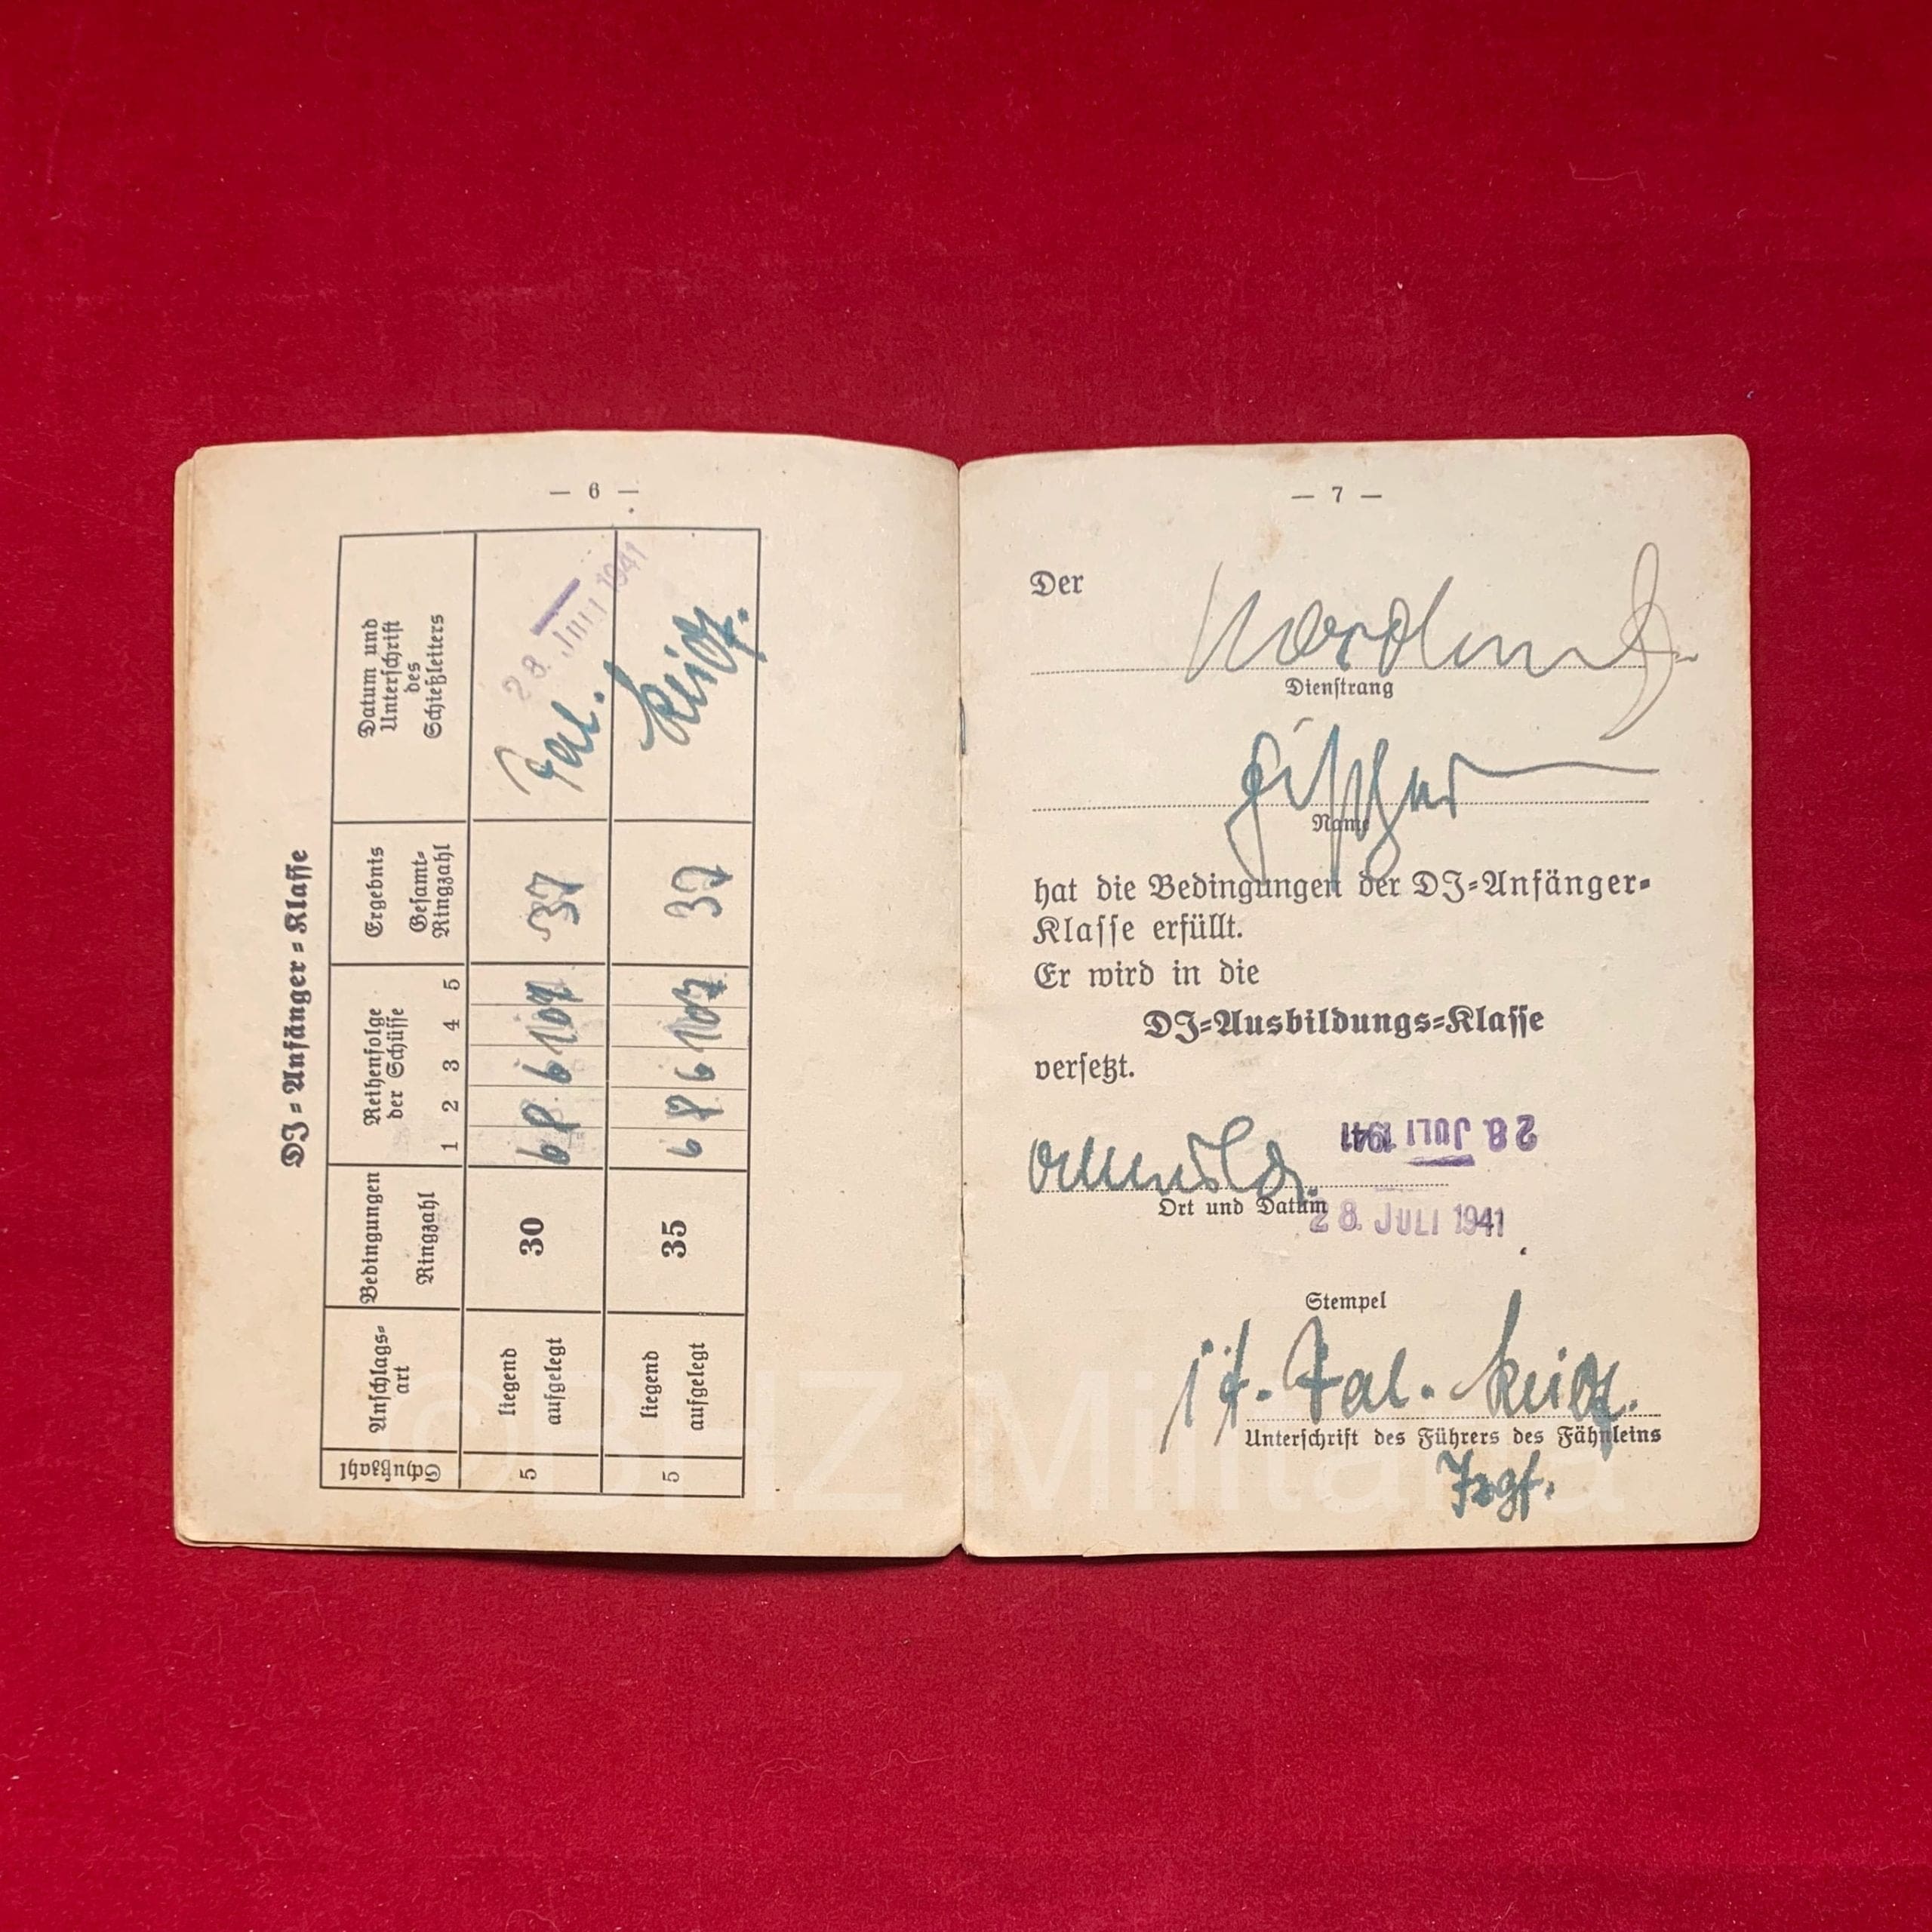 — 6 —
DJ=Anfänger=Klasse
Schußzahl
Anschlags=
art
Bedingungen
Ringzahl
Reihenfolge
der Schüsse
1 2 3 4 5
Ergebnis
Gesamt=
Ringzahl
Datum und
Unterschrift
des
Schießleiters
5
liegend
aufgelegt
30
6 8 6 10 7
37
28. JULI 1941
5
liegend
aufgelegt
35
6 8 6 10 7
37
— 7 —
Der
Dienstrang
Name
hat die Bedingungen der DJ=Anfänger=
Klasse erfüllt.
Er wird in die
DJ=Ausbildungs=Klasse
versetzt.
28. JULI 1941
Ort und Datum
28. JULI 1941
Stempel
Unterschrift des Führers des Fähnleins
©BHZ Militaria